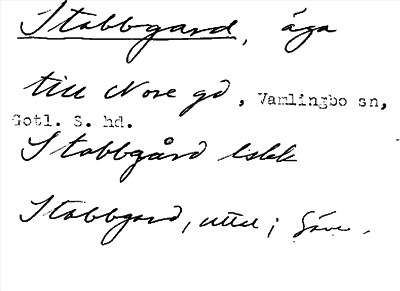 Stobbgard, äga
till Nore gd, Vamlingbo sn,
Gotl. S. hd.
Stobbgård
Stobbgard, uttal i